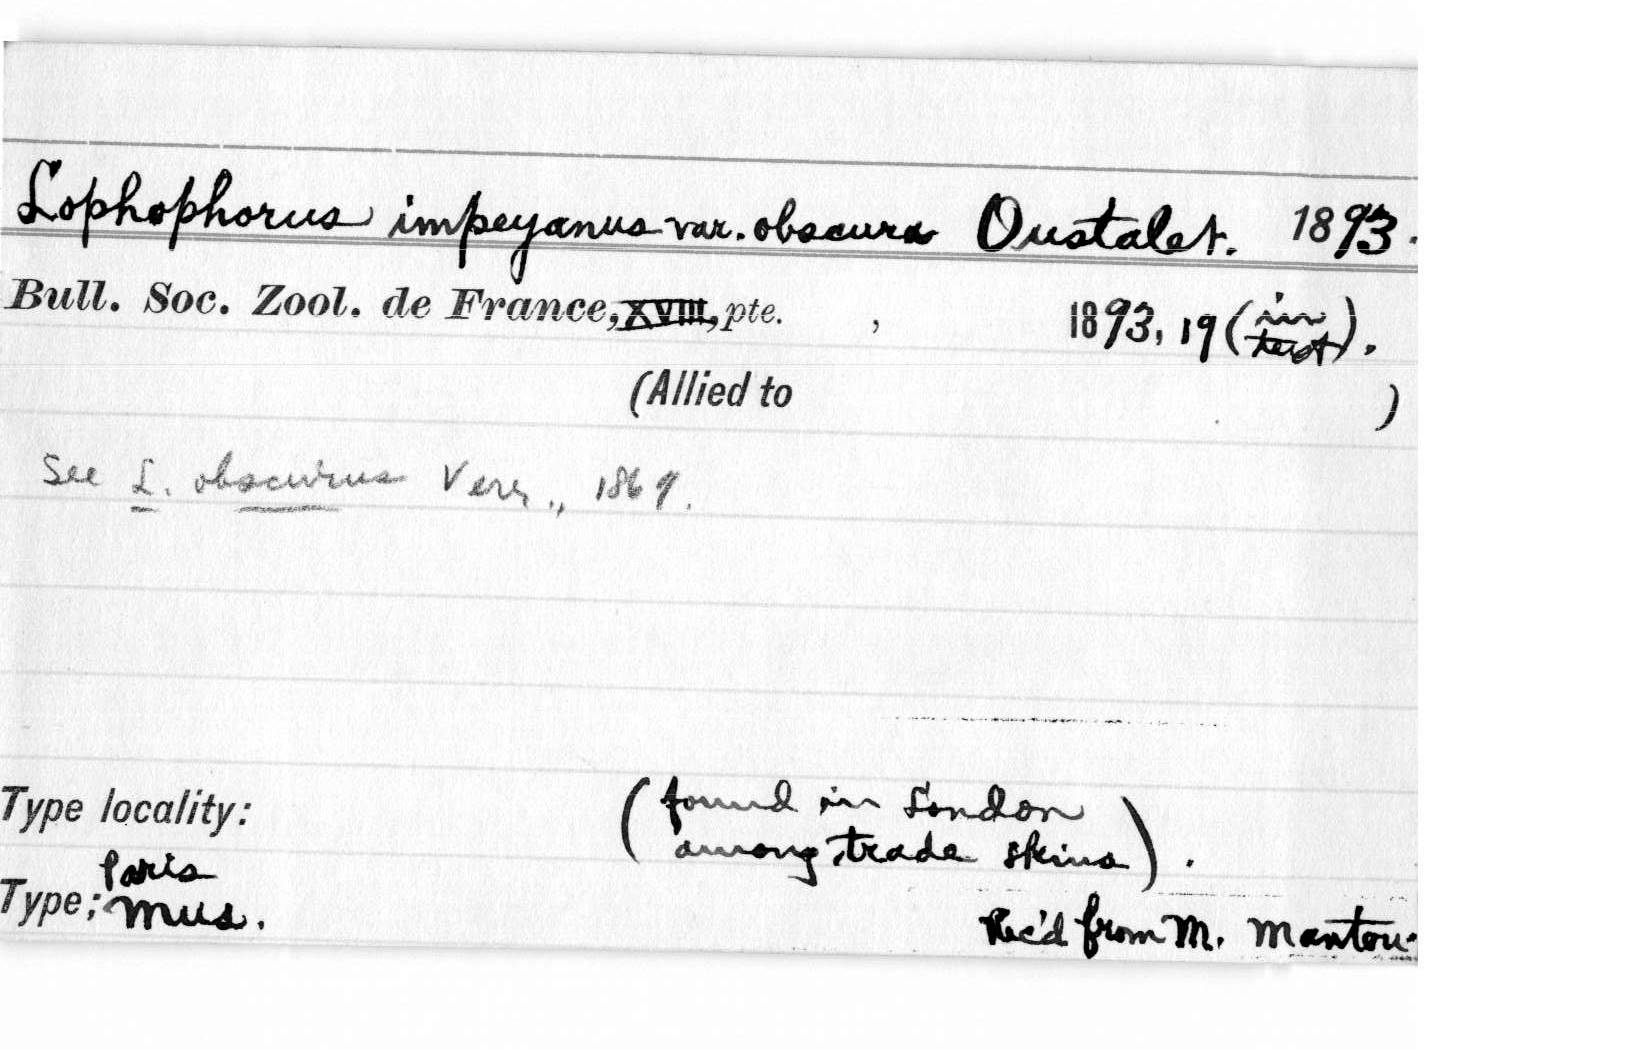 Lophophorus impeyanus var. obscura Oustalet. 1893.
Bull. Soc. Zool. de France, XVIII, pte. , 1893, 19 (in text).
(Allied to )
See L. obscurus Verr., 1869.
Type locality: (found in London
among trade skins).
Paris
Type; Mus.
Rec'd from M. Mantou.